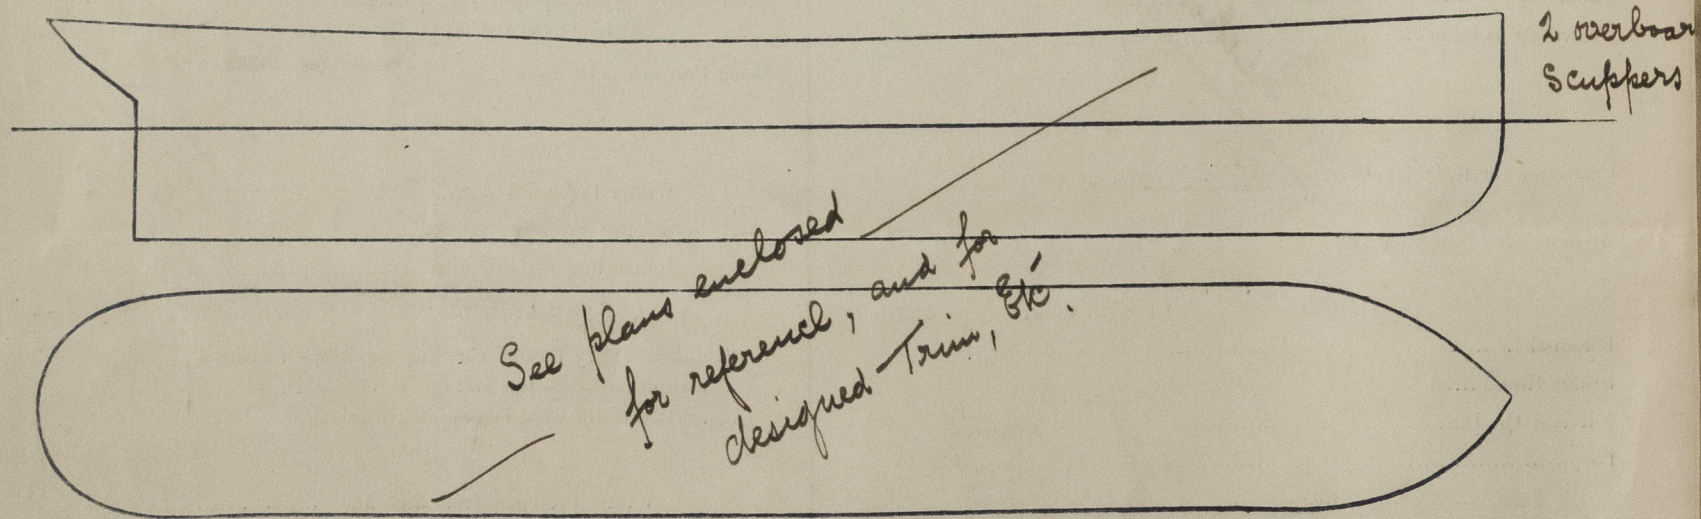 2 overboar
Scuppers
See plans enclosed
for reference, and for
designed Trim, Etc.